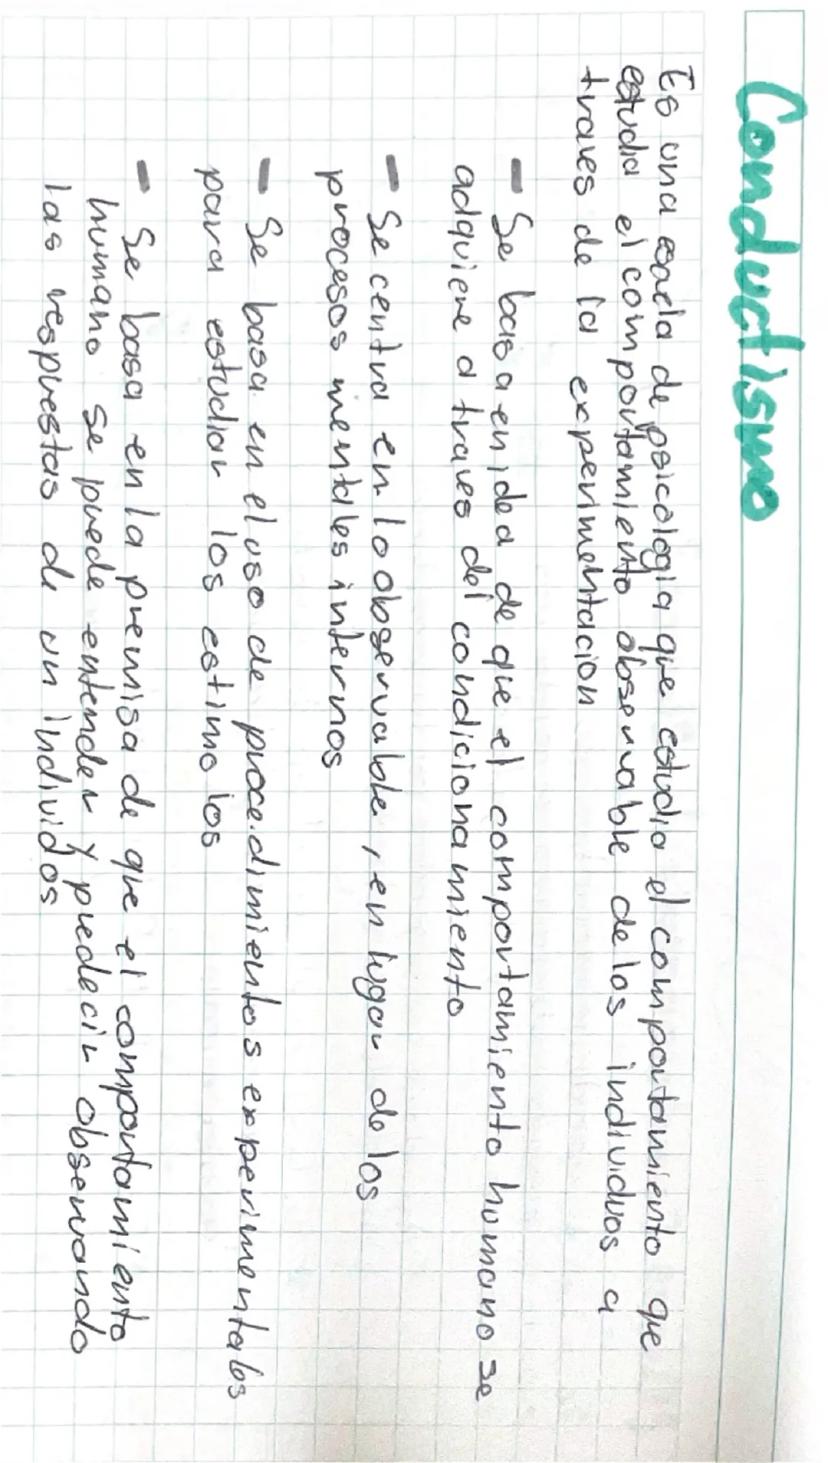 Conductismo
Es una esacla de psicologia que estudia el comportamiento que
estudia el comportamiento observable de los individuos a
traves de la experimentacion
- Se basa en idea de que el comportamiento humano se
adquiere a traves del condicionamiento
- Se centra en lo observable, en lugar de los
procesos mentales internos
- Se basa en el uso de procedimientos experimentalos
para estudiar los estimolos
- Se basa en la premisa de que el comportamiento
humano se puede entender y predecir observando
las respuestas de un individos